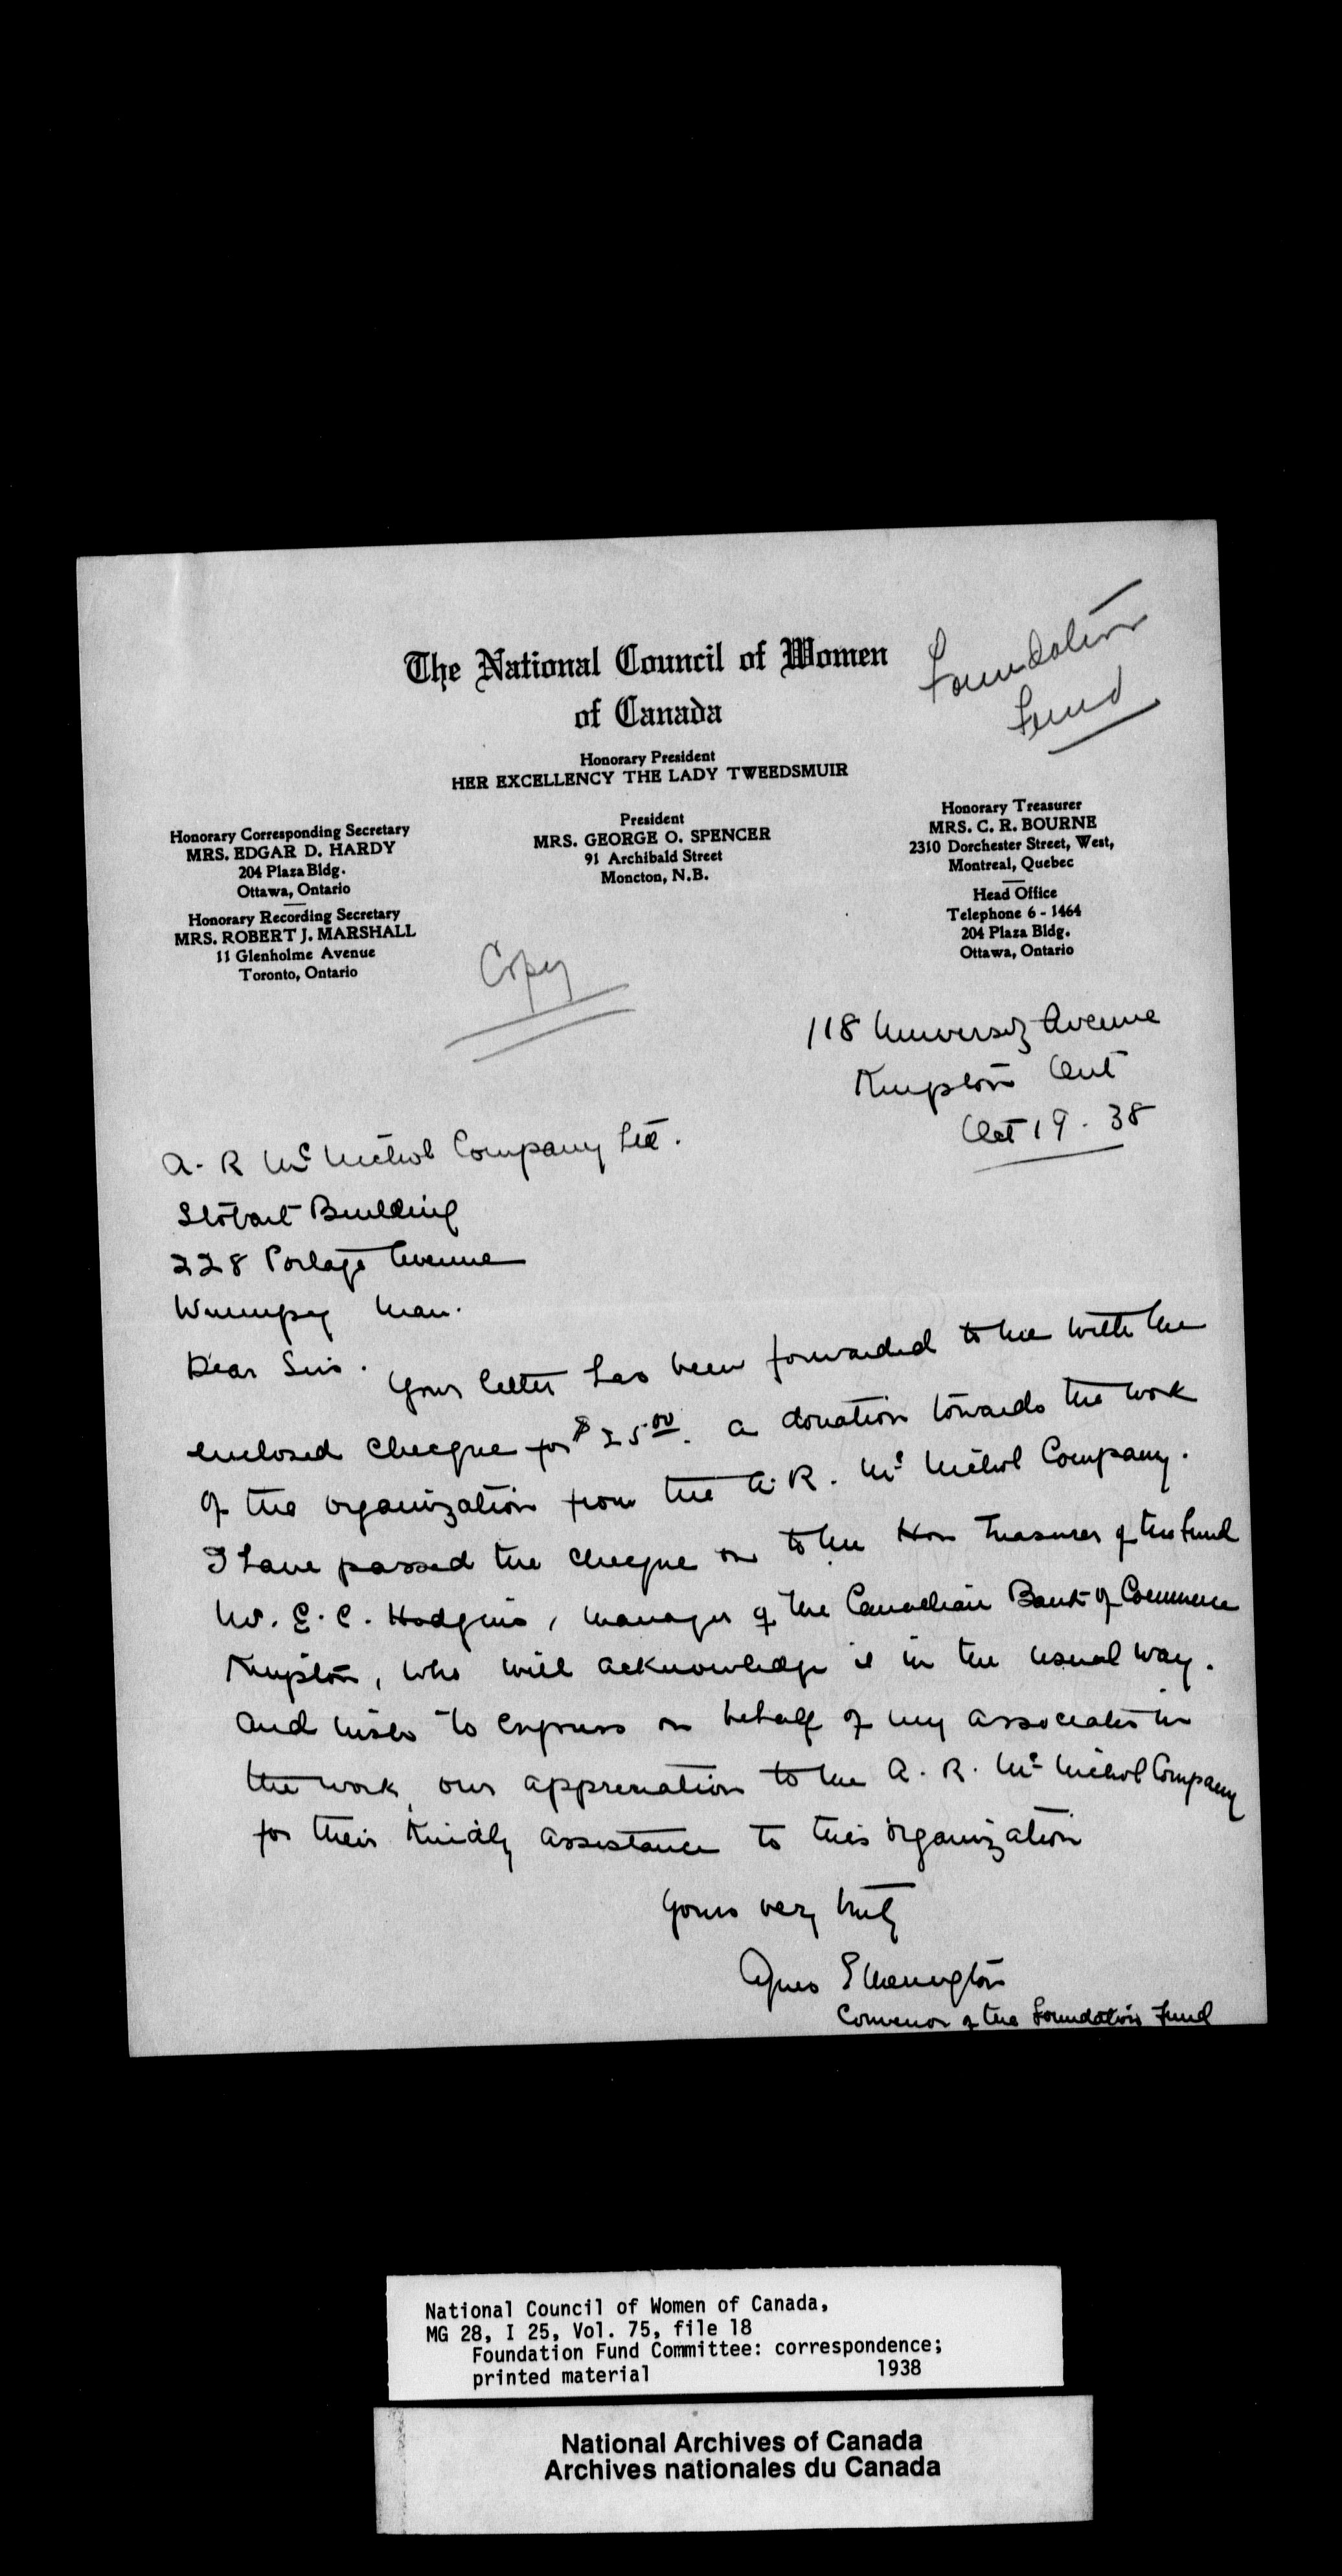 The National Council of Women
of Canada
Foundation
Fund
Honorary President
HER EXCELLENCY THE LADY TWEEDSMUIR
Honorary Corresponding Secretary
MRS. EDGAR D. HARDY
204 Plaza Bldg.
Ottawa, Ontario
Honorary Recording Secretary
MRS. ROBERT J. MARSHALL
11 Glenholme Avenue
Toronto, Ontario
President
MRS. GEORGE O. SPENCER
91 Archibald Street
Moncton, N.B.
Honorary Treasurer
MRS. C. R. BOURNE
2310 Dorchester Street, West,
Montreal, Quebec
Head Office
Telephone 6 - 1464
204 Plaza Bldg.
Ottawa, Ontario
Copy
118 University Avenue
Kingston Ont
Oct 19 - 38
A. R Mc Nichol Company Ltd.
Stobart Building
228 Portage Avenue
Winnipeg Man.
Dear Sirs.
Your letter has been forwarded to me with the
enclosed cheque for $25.00. a donation towards the work
of the organization from the A. R. Mc Nichol Company.
I have passed the cheque on to the Hon Treasurer of the Fund
Mr. E. C. Hodgins, Manager of the Canadian Bank of Commerce
Kingston, who will acknowledge it in the usual way.
and wish to express on behalf of my associates in
the work, our appreciation to the A. R. Mc Nichol Company
for their kindly assistance to this organization
Yours very truly
Agnes Etherington
Convenor of the Foundation Fund
National Council of Women of Canada,
MG 28, I 25, Vol. 75, file 18
Foundation Fund Committee: correspondence;
printed material 1938
National Archives of Canada
Archives nationales du Canada